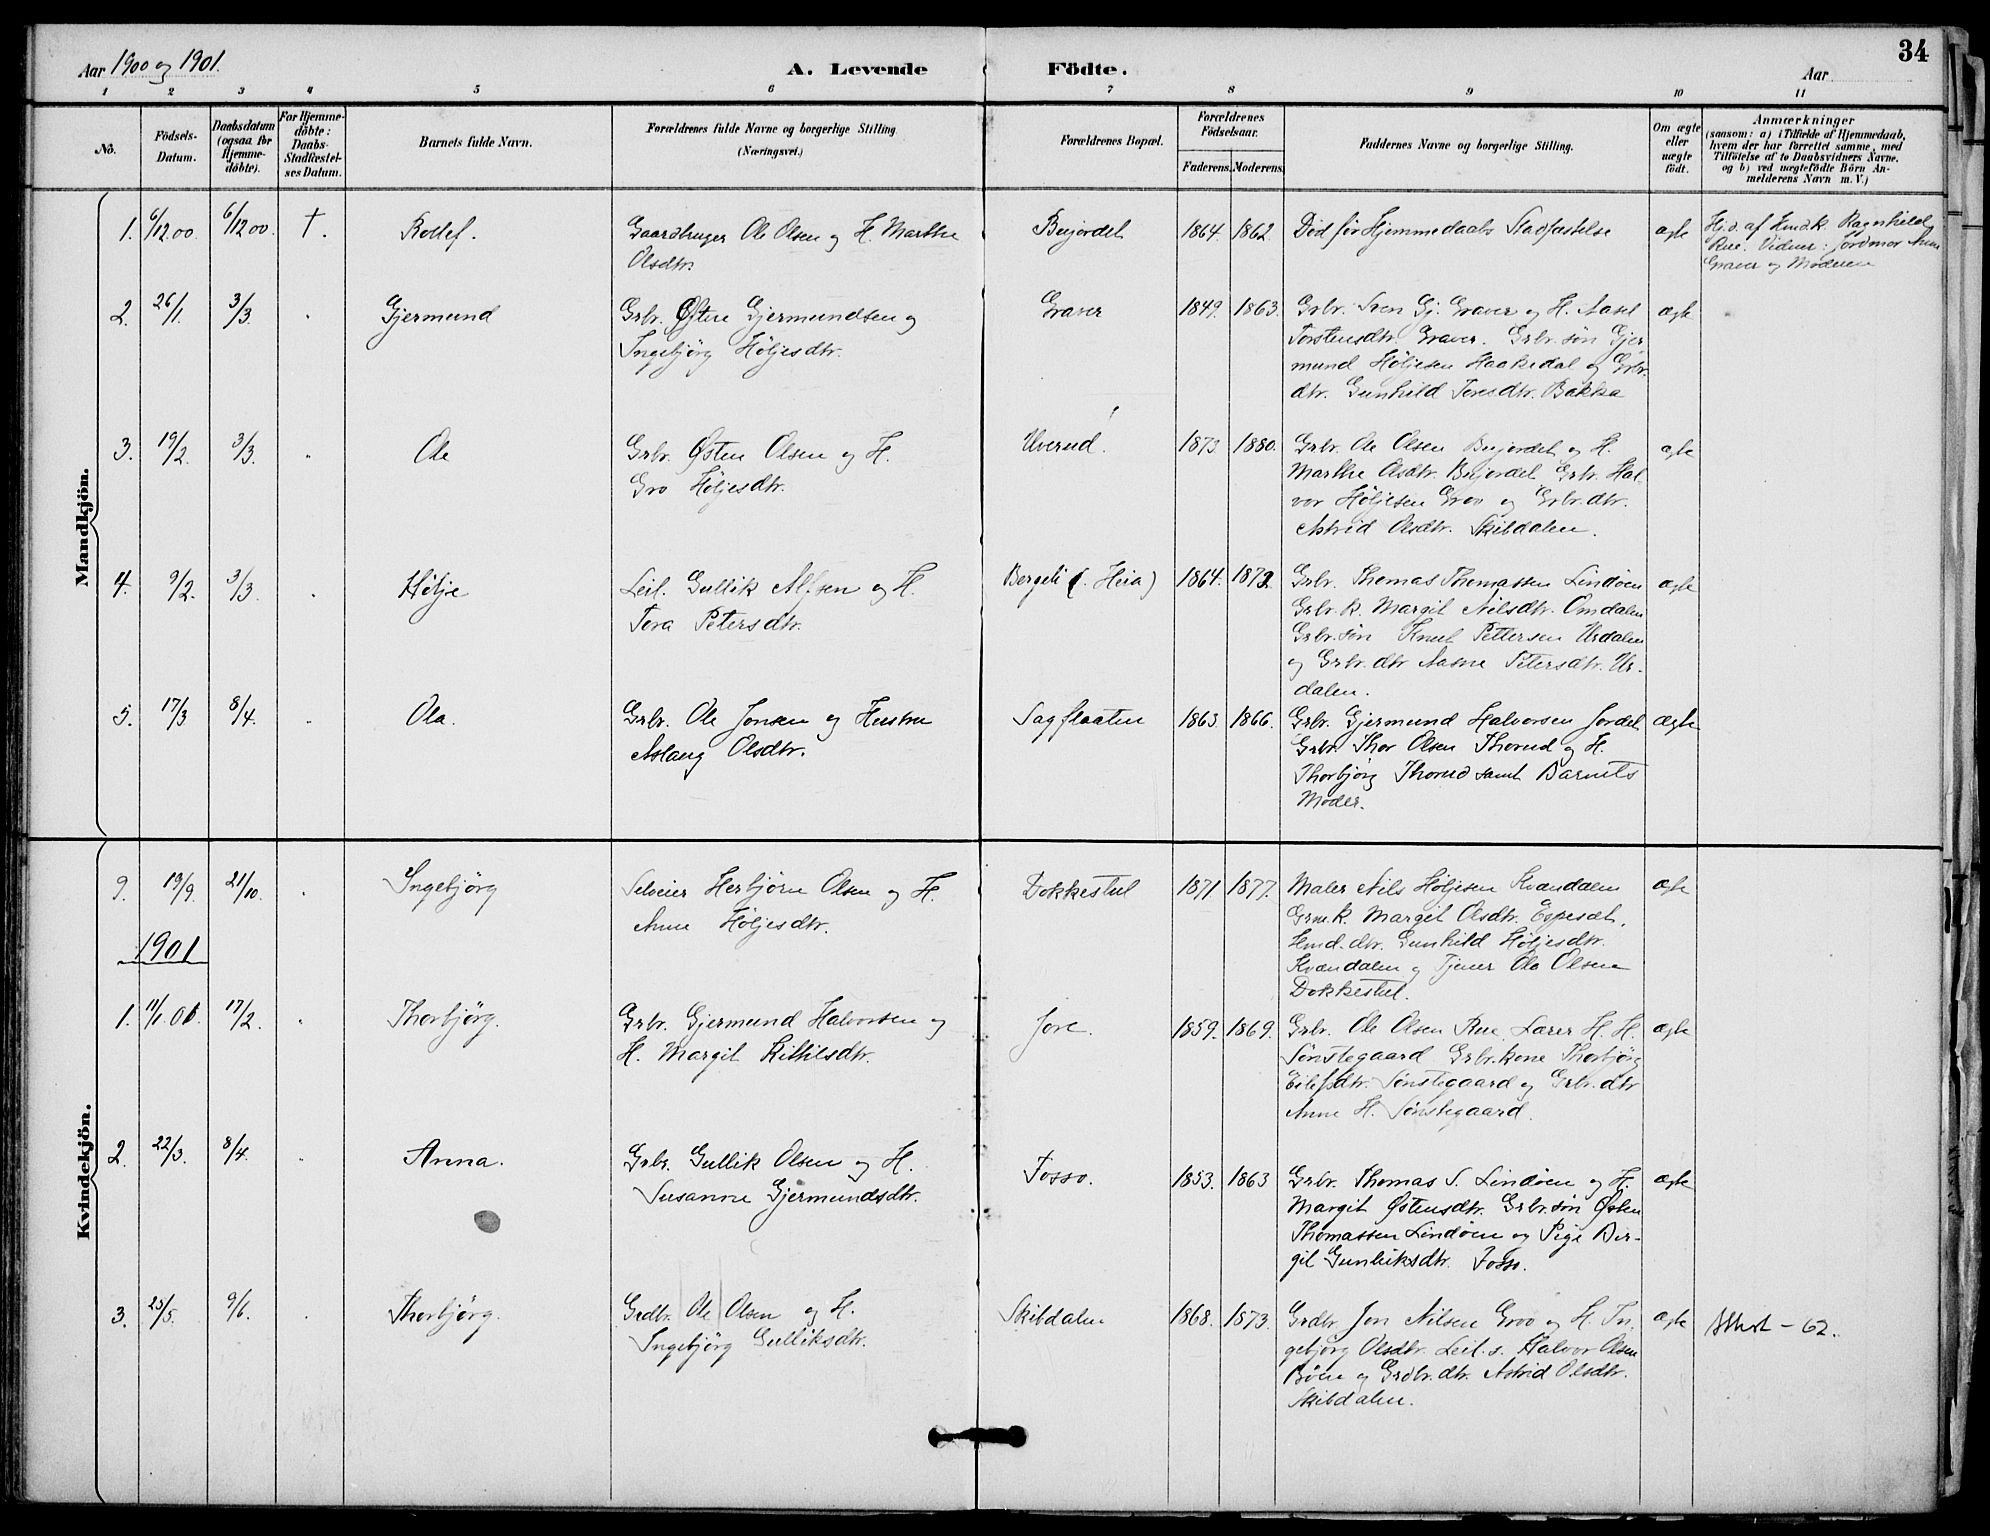 34
Aar 1900 og 1901.
A. Levende Födte.
Aar
1 2 3 4 5 6 7 8 9 10 11
No.
Födsels-
Datum.
Daabsdatum
(ogsaa for
Hjemme-
döbte).
For Hjemme-
döbte:
Daabs-
Stadfæstel-
ses Datum.
Barnets fulde Navn.
Forældrenes fulde Navne og borgerlige Stilling
(Næringsvei.)
Forældrenes Bopæl.
Forældrenes
Födselsaar.
Faderens. Moderens.
Faddernes Navne og borgerlige Stilling.
Om ægte
eller
uægte
födt.
Anmærkninger
(saasom: a) i Tilfælde af Hjemmedaab,
hvem der har forrettet samme, med
Tilföielse af to Daabsvidners Navne.
og b) ved uægtefödte Börn An-
melderens Navn m. V.)
Mandkjön.
1. 6/12 00. 6/12 00. †. Rollef. Gaardbruger Ole Olsen og H. Marthe
Olsdtr.
Bujordet 1864. 1862. Död før Hjemmedaabs Stadfæstelse ægte
Hj.d. af Hmdk. Ragnhild
Rue. Vidner: Jordmor Anne
Graver og Moderen
2. 26/1. 3/3. " Gjermund Grbr. Østen Gjermundsen og
Ingebjörg Höljesdtr.
Graver 1849. 1863. Grbr. Sven Gj. Graver og H. Aasel
Torstensdtr. Graver. Grbr. søn Gjer-
mund Höljesen Haakedal og Grbr.
dtr. Gunhild Toresdtr. Bakka
ægte
3. 19/2. 3/3. " Ole Grbr. Østen Olsen og H.
Gro Höljesdtr.
Uverud. 1873. 1880. Grbr. Ole Olsen Bujordet og H.
Marthe Olsdtr. Bujordet Grbr. Hal-
vor Höljesen Groo og Grbr. dtr.
Astrid Olsdtr. Skibdalen.
ægte
4. 9/2. 3/3. " Hölje Leil. Gullik Alfsen og H.
Tora Petersdtr.
Bergeli (. Heia) 1864. 1872. Grbr. Thomas Thomassen Lindöen
Grbr. k. Margit Nilsdtr. Omdalen
Grbr. søn Knut Pettersen Urdalen
og Grbr. dtr Aasne Petersdtr. Ur-
dalen.
ægte
5. 17/3 8/4. " Ola. Grbr. Ole Jonsen og Hustru
Aslaug Olsdtr.
Sagflaaten 1863 1866. Grbr. Gjermund Halvorsen Jordet
Grbr. Thor Olsen Thorud og H.
Thorbjörg Thorud samt Barnets
Moder.
ægte
Kvindekjön.
9. 19/9. 21/10. " Ingebjörg Selveier Herbjörn Olsen og H.
Anne Höljesdtr.
Dokkestul 1871. 1877. Maler Nils Höljesen Kvændalen
Grmk. Margit Olsdtr. Espesæt,
Hmd. dtr. Gunhild Höljesdtr.
Kvændalen og Tjener Ole Olsen
Dokkestul.
ægte
1901
1. 11/1. 01. 17/2. " Thorbjörg. Grbr. Gjermund Halvorsen og
H. Margit Kittilsdtr.
Jore. 1859. 1869. Grbr. Ole Olsen Rue, Lærer H. H.
Sønstegaard Grbr. kone Thorbjörg
Eilefsdtr. Sønstegaard og Grbr. dtr
Anne H. Sønstegaard.
ægte
2. 22/3. 8/4. " Anna. Grbr. Gullik Olsen og H.
Susanne Gjermundsdtr.
Fosso. 1853. 1863 Grbr. Thomas S. Lindöen og H.
Margit Østensdtr. Grbr. søn Østen
Thomassen Lindöen og Pige Bir-
git Gunliksdtr. Fosso.
ægte
3. 25/5. 9/6. " Thorbjörg. Grdbr. Ole Olsen og H.
Ingebjörg Gulliksdtr.
Skibdalen 1868. 1873. Grdbr. Jon Nilsen Groo og H. In-
gebjörg Olsdtr. Leil. s. Halvor Olsen
Böen og Grdbr. dtr. Astrid Olsdtr.
Skibdalen.
ægte
Attest – 62.